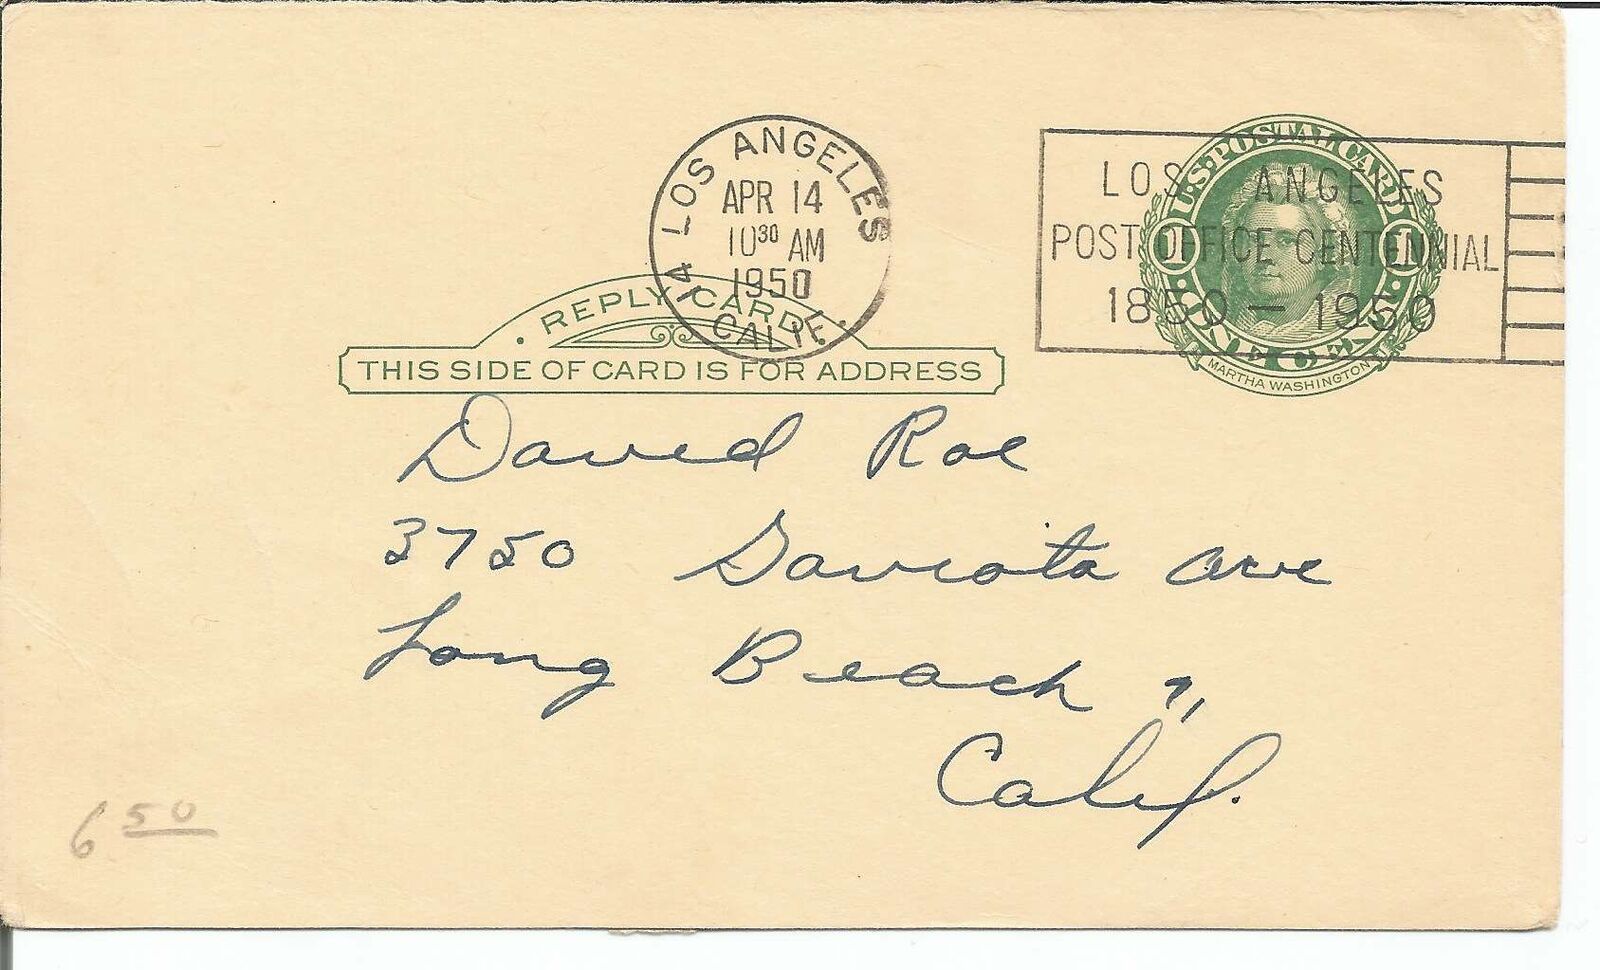 14 LOS ANGELES CALIF.
APR 14
10 30 AM
1950
LOS ANGELES
POST OFFICE CENTENNIAL
1850 — 1950
U.S. POSTAL CARD
1 1
ONE CENT
MARTHA WASHINGTON
· REPLY CARD ·
THIS SIDE OF CARD IS FOR ADDRESS
David Roe
3750 Gaviota Ave
Long Beach 7,
Calif.
6 50